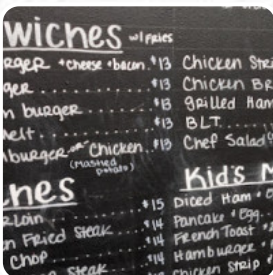 wiches w/ Fries
rger +cheese +bacon $13
ger $13
n burger $13
elt $13
burger or Chicken $13
(Mashed Potato)
Chicken Stri
Chicken Br
Grilled Ham
BLT
Chef Salad
hes
rloin $15
n Fried Steak $14
Chop $14
steak $14
Kid's M
Diced Ham +
Pancake + Egg
French Toast +
Hamburger +
Chicken Strip